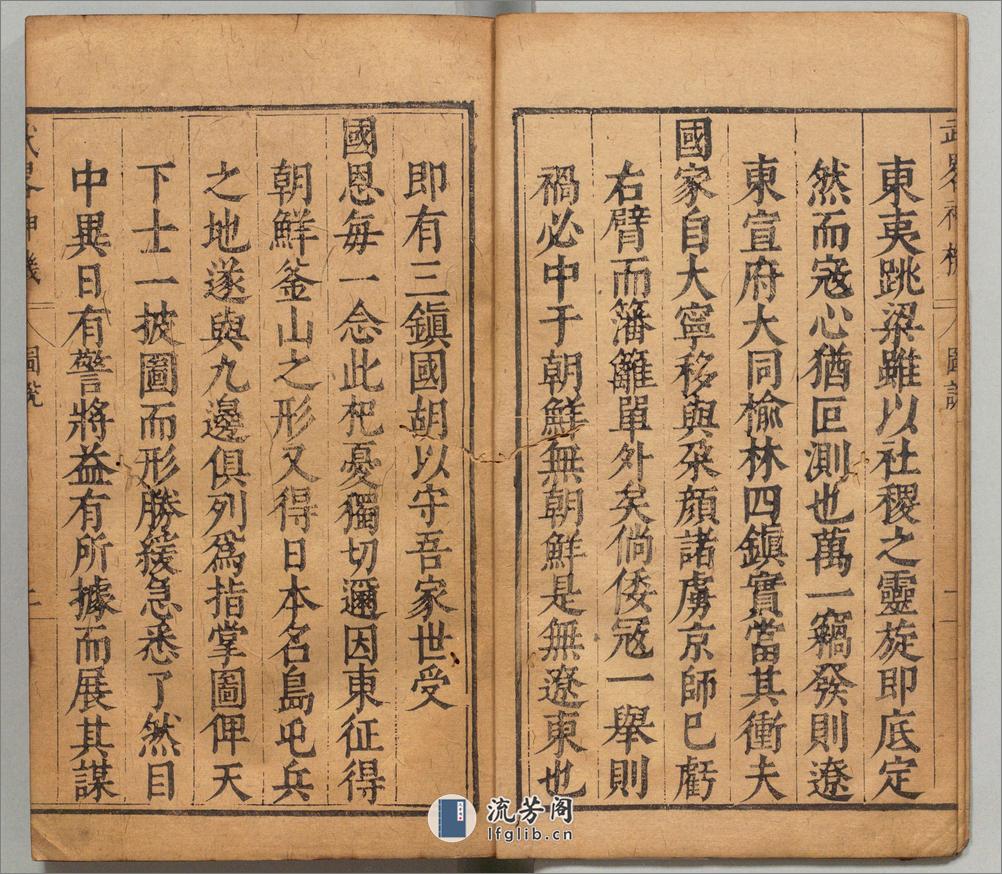 武畧神機
圖說
一
東夷跳梁雖以社稷之靈旋即底定
然而寇心猶叵測也萬一竊發則遼
東宣府大同榆林四鎮實當其衝夫
國家自大寧移與朶顏諸虜京師巳虧
右臂而籓籬單外矣倘倭冦一舉則
禍必中于朝鮮無朝鮮是無遼東也
即有三鎮國胡以守吾家世受
國恩每一念此杞憂獨切邇因東征得
朝鮮釜山之形又得日本名島屯兵
之地遂與九邊俱列爲指掌圖俾天
下士一披圖而形勝緩急悉了然目
中異日有警將益有所據而展其謀
武畧神機
圖說
二
流芳阁
lfglib.cn